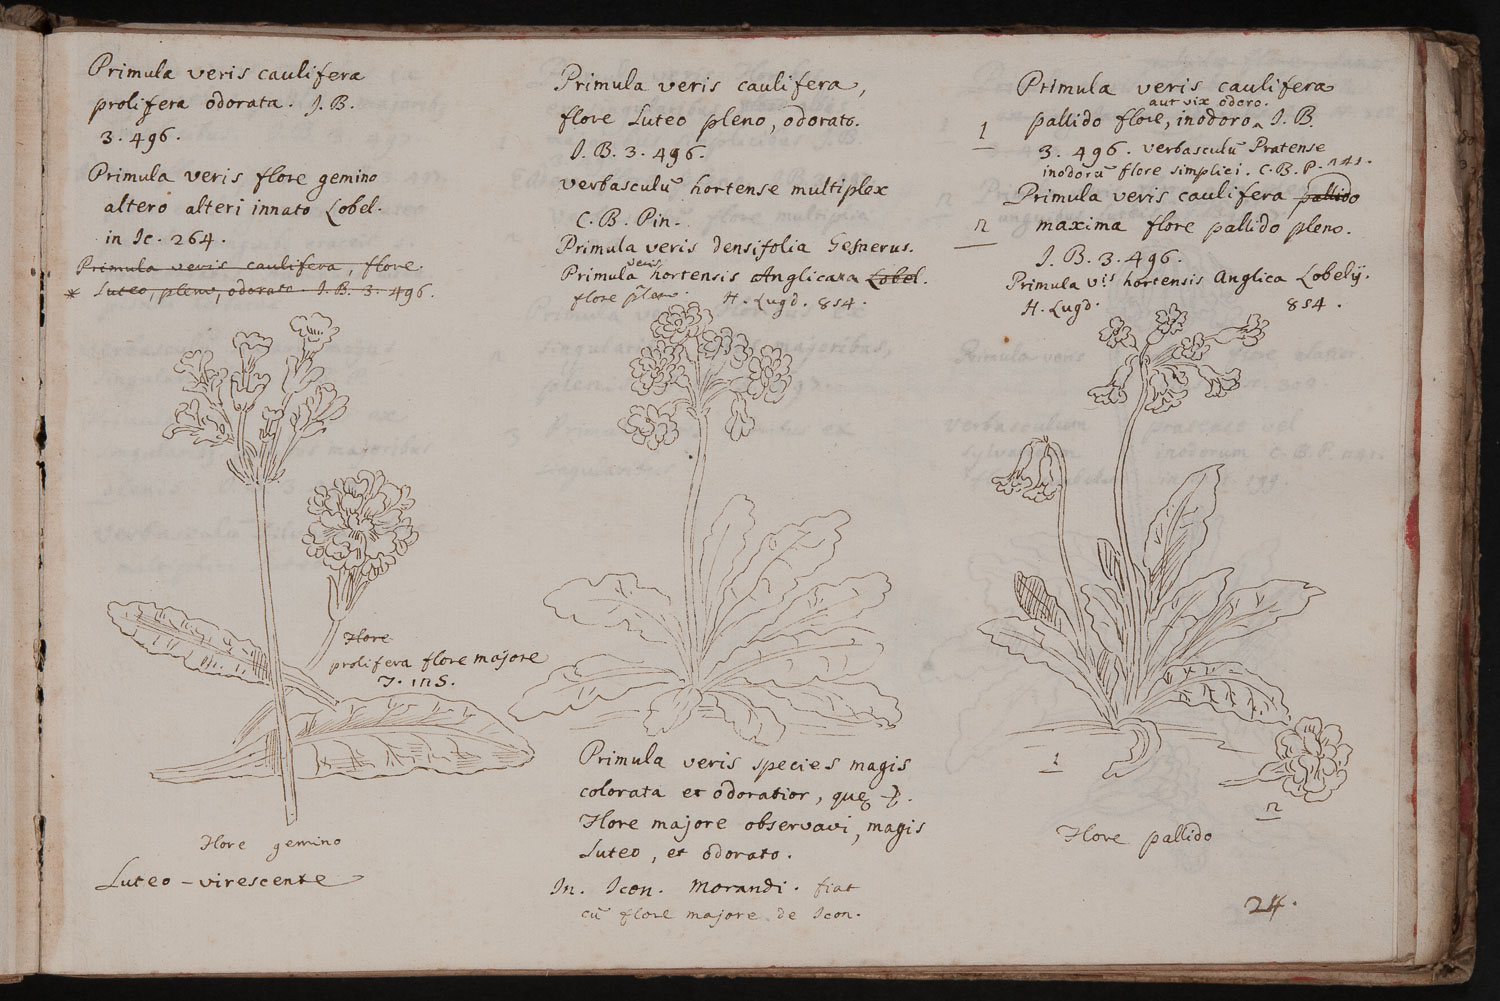 Primula veris caulifera
prolifera odorata. I. B.
3. 496.
Primula veris flore gemino
altero alteri innato Lobel.
in Ic. 264.
Primula veris caulifera, flore
* Luteo, pleno, odorato. I. B. 3. 496.
Flore
prolifera flore majore
I. in S.
Flore gemino
Luteo-virescente
Primula veris caulifera,
flore Luteo pleno, odorato.
I. B. 3. 496.
verbasculũ hortense multiplex
C. B. Pin.
Primula veris densifolia Gesnerus.
veris
Primula hortensis Anglicana Lobel.
flore pleno. H. Lugd. 854.
Primula veris species magis
colorata et odoratior, quę
Flore majore observavi, magis
Luteo, et odorato.
In. Icon. Morandi. fiat
cũ flore majore de Icon.
Primula veris caulifera
aut vix odoro.
1 pallido flore, inodoro ‸ I. B.
3. 496. verbasculũ Pratense
inodorũ flore simplici. C. B. P. 241.
Primula veris caulifera pallido
2 maxima flore pallido pleno.
I. B. 3. 496.
Primula v:is hortensis Anglica Lobelij.
H. Lugd. 854.
1
2
Flore pallido
24.